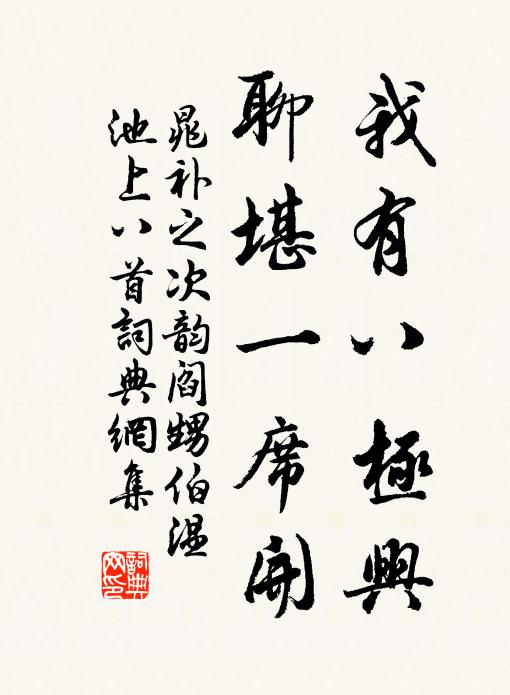 我有八極興
聊堪一席開
晁补之次韵阎甥伯温
池上八首詞典網集
詞典網印